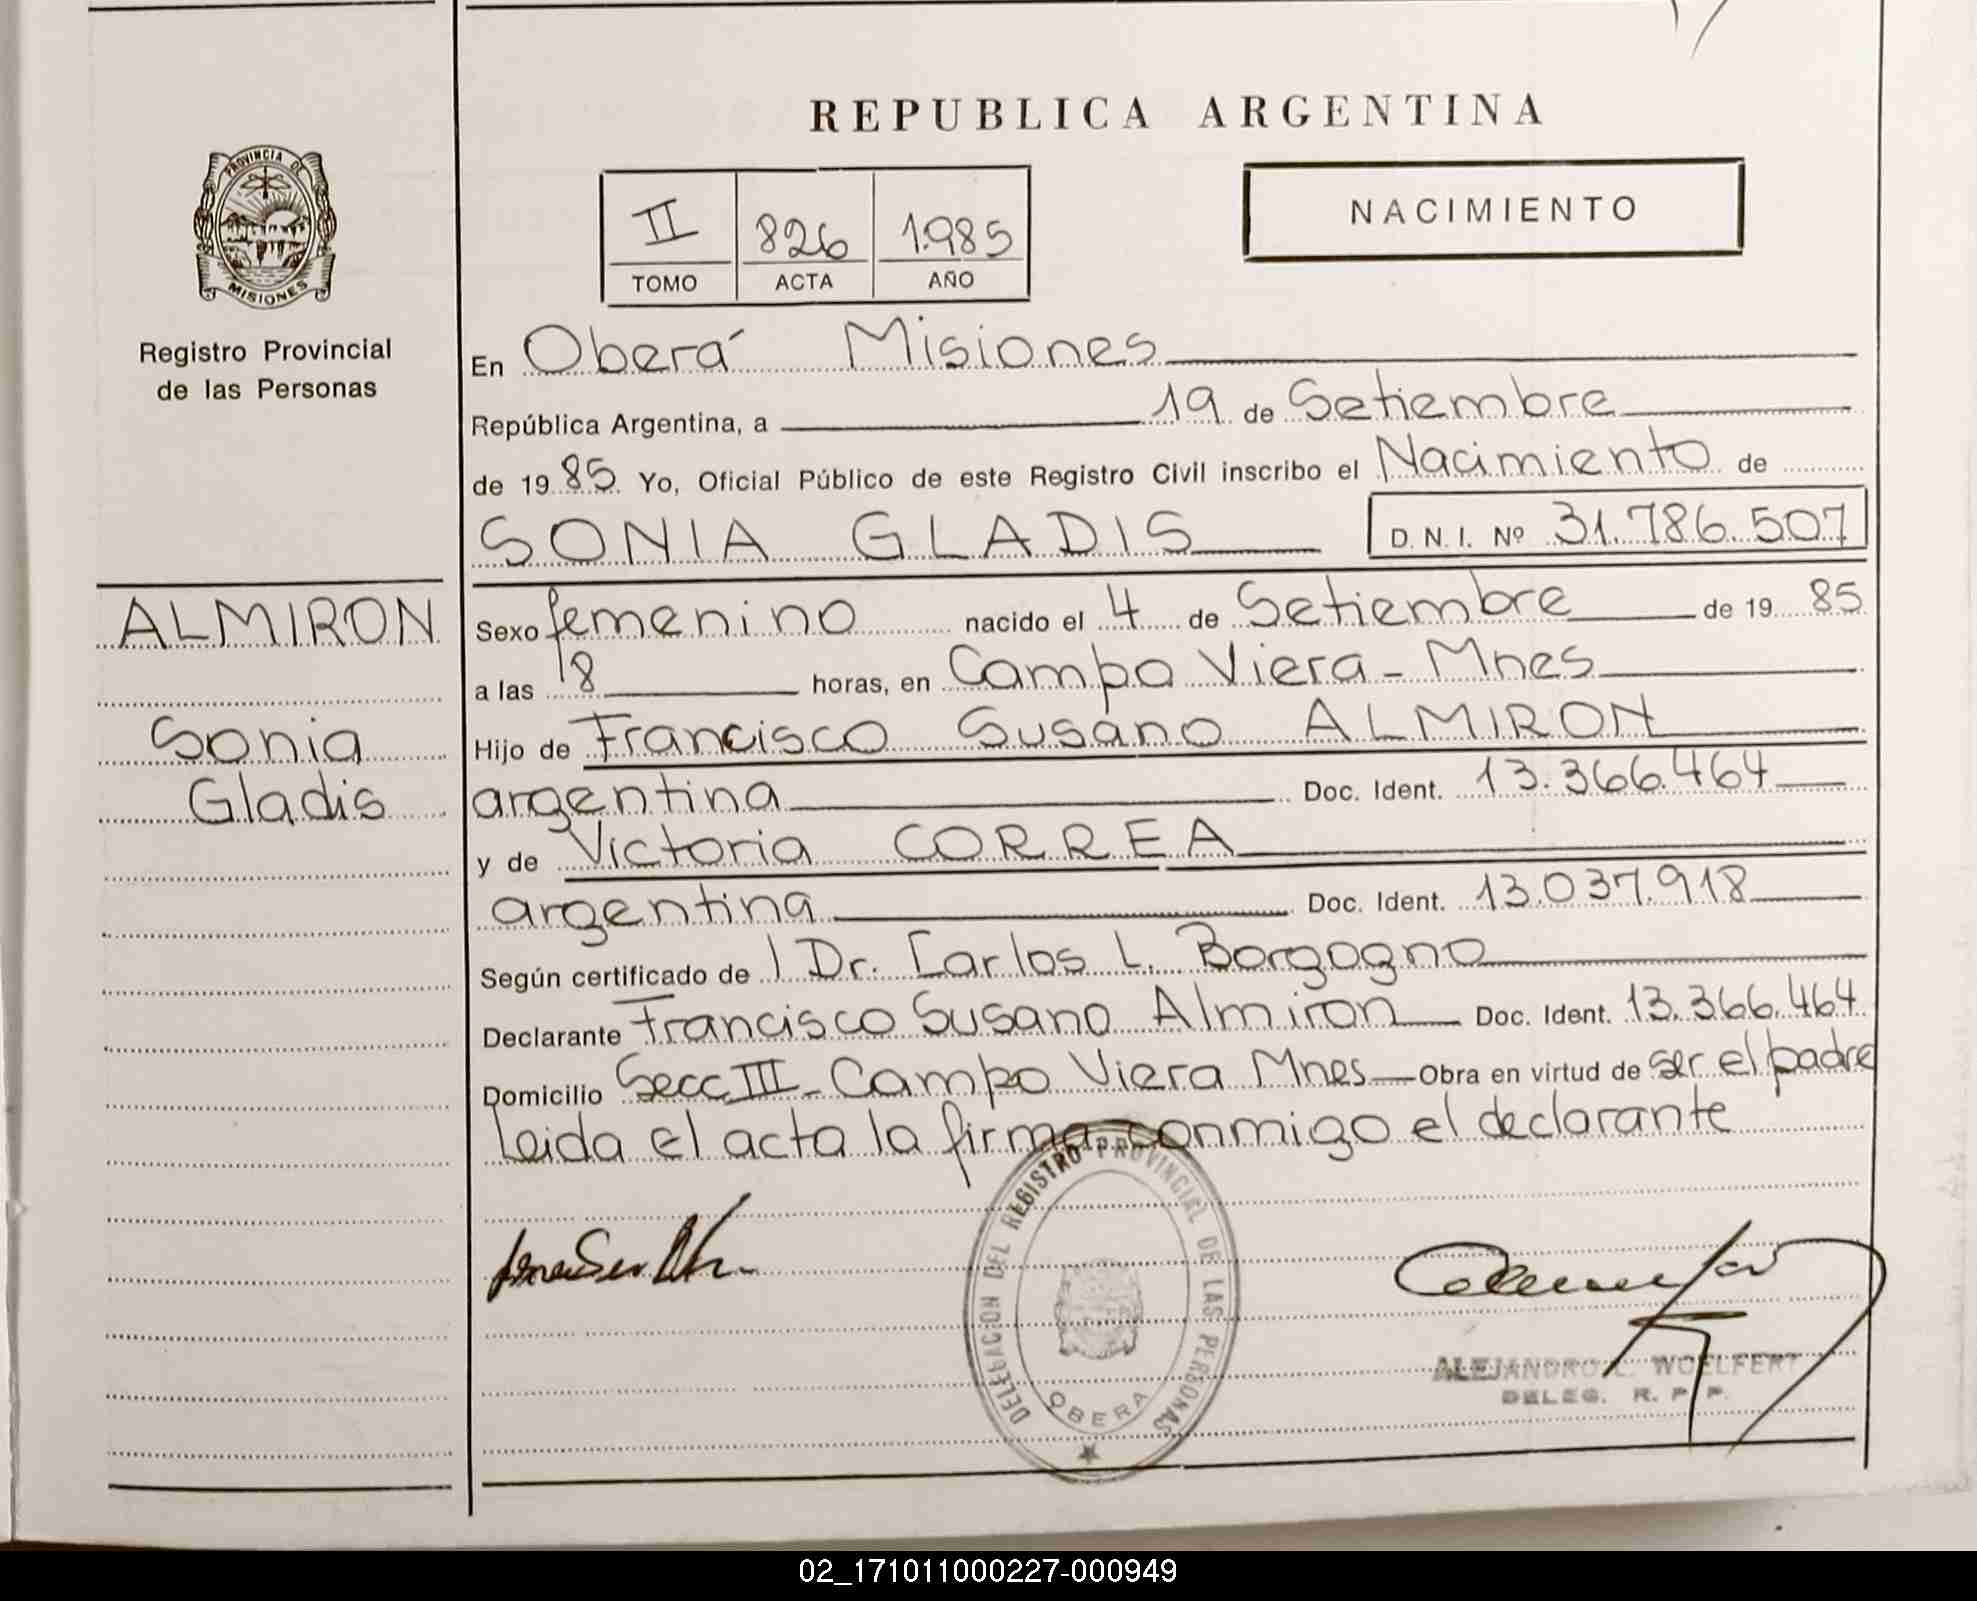 REPUBLICA ARGENTINA
PROVINCIA DE
MISIONES
Registro Provincial
de las Personas
II 826 1.985
TOMO ACTA AÑO
NACIMIENTO
En Oberá Misiones
República Argentina, a 19 de Setiembre
de 19 85 Yo, Oficial Público de este Registro Civil inscribo el Nacimiento de
SONIA GLADIS D. N. I. Nº 31.786.507
ALMIRON
Sonia
Gladis
Sexo femenino nacido el 4 de Setiembre de 19 85
a las 18 horas, en Campo Viera - Mnes
Hijo de Francisco Susano ALMIRON
argentina Doc. Ident. 13.366.464
y de Victoria CORREA
argentina Doc. Ident. 13.037.918
Según certificado de l Dr. Carlos L. Borgogno
Declarante Francisco Susano Almiron Doc. Ident. 13.366.464
Domicilio Secc III - Campo Viera Mnes Obra en virtud de ser el padre
Leida el acta la firma conmigo el declarante
DELEGACION DEL REGISTRO PROVINCIAL DE LAS PERSONAS
OBERA
ALEJANDRO WOELFERT
DELEG. R. P. P.
02_171011000227-000949